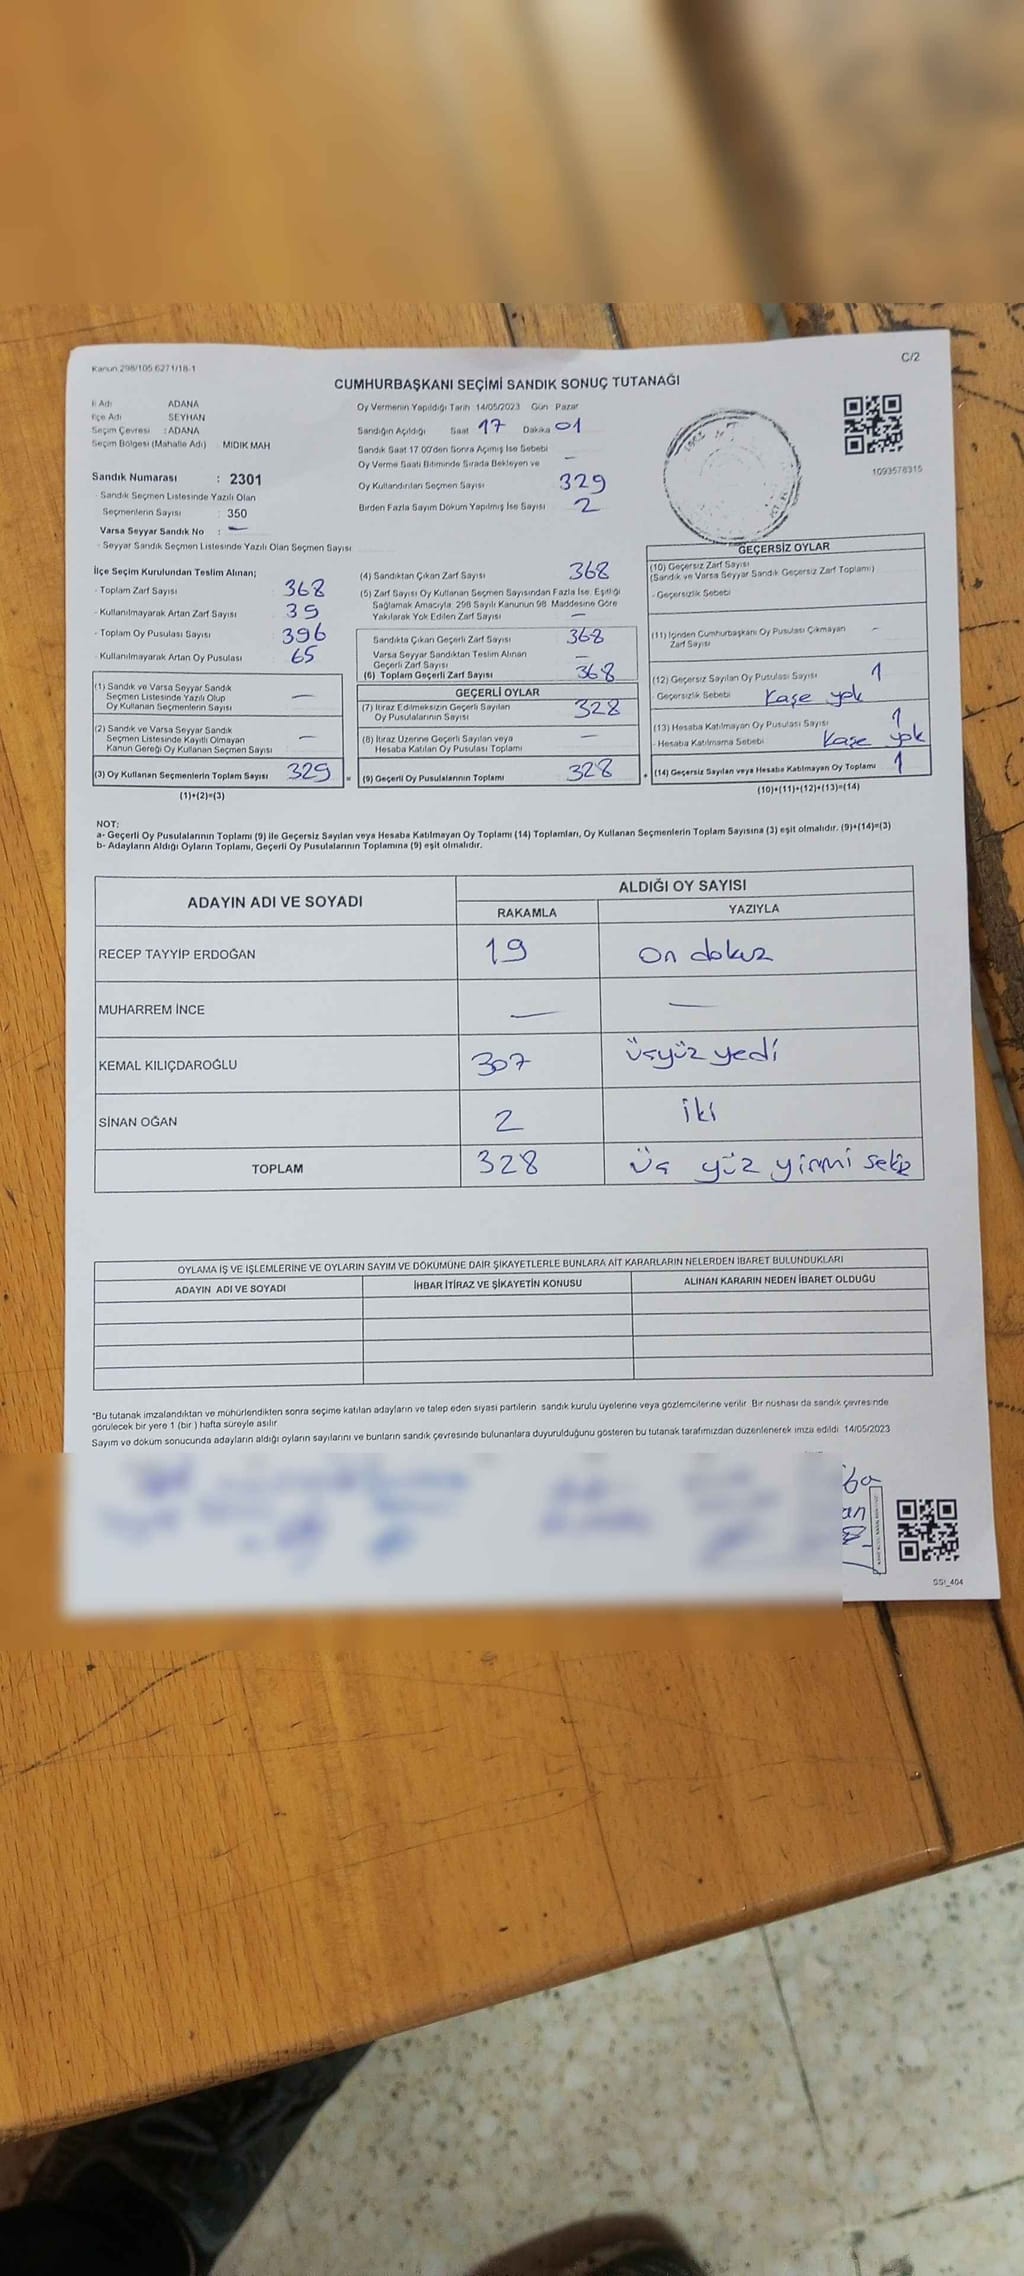 Kanun 298/105 6271/18-1
C/2
CUMHURBAŞKANI SEÇİMİ SANDIK SONUÇ TUTANAĞI
İl Adı ADANA
İlçe Adı SEYHAN
Seçim Çevresi : ADANA
Seçim Bölgesi (Mahalle Adı) MIDIK MAH
Sandık Numarası : 2301
- Sandık Seçmen Listesinde Yazılı Olan
Seçmenlerin Sayısı : 350
Varsa Seyyar Sandık No : —
- Seyyar Sandık Seçmen Listesinde Yazılı Olan Seçmen Sayısı
Oy Vermenin Yapıldığı Tarih 14/05/2023 Gün Pazar
Sandığın Açıldığı Saat 17 Dakika 01
Sandık Saat 17 00'den Sonra Açımış İse Sebebi —
Oy Verme Saati Bitiminde Sırada Bekleyen ve
Oy Kullandırılan Seçmen Sayısı 329
Birden Fazla Sayım Döküm Yapılmış İse Sayısı 2
1093578315
İlçe Seçim Kurulundan Teslim Alınan;
- Toplam Zarf Sayısı 368
- Kullanılmayarak Artan Zarf Sayısı 39
- Toplam Oy Pusulası Sayısı 396
- Kullanılmayarak Artan Oy Pusulası 65
(1) Sandık ve Varsa Seyyar Sandık
Seçmen Listesinde Yazılı Olup
Oy Kullanan Seçmenlerin Sayısı —
(2) Sandık ve Varsa Seyyar Sandık
Seçmen Listesinde Kayıtlı Olmayan
Kanun Gereği Oy Kullanan Seçmen Sayısı —
(3) Oy Kullanan Seçmenlerin Toplam Sayısı 329 =
(1)+(2)=(3)
(4) Sandıktan Çıkan Zarf Sayısı 368
(5) Zarf Sayısı Oy Kullanan Seçmen Sayısından Fazla İse, Eşitliği
Sağlamak Amacıyla, 298 Sayılı Kanunun 98. Maddesine Göre
Yakılarak Yok Edilen Zarf Sayısı —
Sandıkta Çıkan Geçerli Zarf Sayısı 368
Varsa Seyyar Sandıktan Teslim Alınan
Geçerli Zarf Sayısı —
(6) Toplam Geçerli Zarf Sayısı 368
GEÇERLİ OYLAR
(7) İtiraz Edilmeksizin Geçerli Sayılan
Oy Pusulalarının Sayısı 328
(8) İtiraz Üzerine Geçerli Sayılan veya
Hesaba Katılan Oy Pusulası Toplamı —
(9) Geçerli Oy Pusulalarının Toplamı 328
GEÇERSİZ OYLAR
(10) Geçersiz Zarf Sayısı
(Sandık ve Varsa Seyyar Sandık Geçersiz Zarf Toplamı)
- Geçersizlik Sebebi
(11) İçinden Cumhurbaşkanı Oy Pusulası Çıkmayan
Zarf Sayısı -
(12) Geçersiz Sayılan Oy Pusulası Sayısı 1
- Geçersizlik Sebebi Kaşe yok
(13) Hesaba Katılmayan Oy Pusulası Sayısı 1
- Hesaba Katılmama Sebebi Kaşe yok
(14) Geçersiz Sayılan veya Hesaba Katılmayan Oy Toplamı 1
(10)+(11)+(12)+(13)=(14)
NOT:
a- Geçerli Oy Pusulalarının Toplamı (9) ile Geçersiz Sayılan veya Hesaba Katılmayan Oy Toplamı (14) Toplamları, Oy Kullanan Seçmenlerin Toplam Sayısına (3) eşit olmalıdır. (9)+(14)=(3)
b- Adayların Aldığı Oyların Toplamı, Geçerli Oy Pusulalarının Toplamına (9) eşit olmalıdır.
ADAYIN ADI VE SOYADI
ALDIĞI OY SAYISI
RAKAMLA YAZIYLA
RECEP TAYYİP ERDOĞAN 19 on dokuz
MUHARREM İNCE — —
KEMAL KILIÇDAROĞLU 307 üçyüz yedi
SİNAN OĞAN 2 iki
TOPLAM 328 üç yüz yirmi sekiz
OYLAMA İŞ VE İŞLEMLERİNE VE OYLARIN SAYIM VE DÖKÜMÜNE DAİR ŞİKAYETLERLE BUNLARA AİT KARARLARIN NELERDEN İBARET BULUNDUKLARI
ADAYIN ADI VE SOYADI İHBAR İTİRAZ VE ŞİKAYETİN KONUSU ALINAN KARARIN NEDEN İBARET OLDUĞU
*Bu tutanak imzalandıktan ve mühürlendikten sonra seçime katılan adayların ve talep eden siyasi partilerin sandık kurulu üyelerine veya gözlemcilerine verilir. Bir nüshası da sandık çevresinde
görülecek bir yere 1 (bir ) hafta süreyle asılır
Sayım ve döküm sonucunda adayların aldığı oyların sayılarını ve bunların sandık çevresinde bulunanlara duyurulduğunu gösteren bu tutanak tarafımızdan düzenlenerek imza edildi 14/05/2023